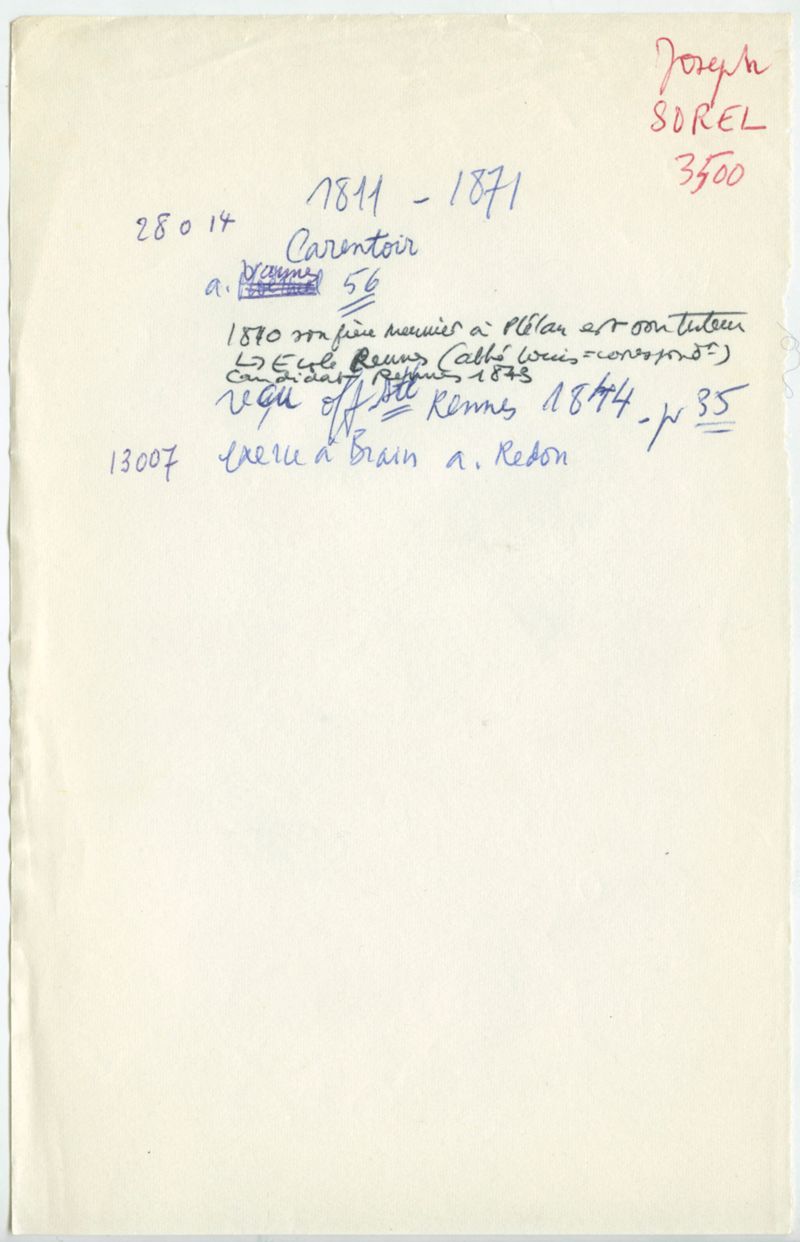 Joseph
SOREL
3500
1811 - 1871
28 0 14
Carentoir
a. Vannes 56
1840 son père meunier à Plélan est son tuteur
↳ Ecole Rennes (abbé Louis = correspondt)
candidat Rennes 1843
reçu off Sté Rennes 1844 - p 35
13007 exerce à Brain a. Redon